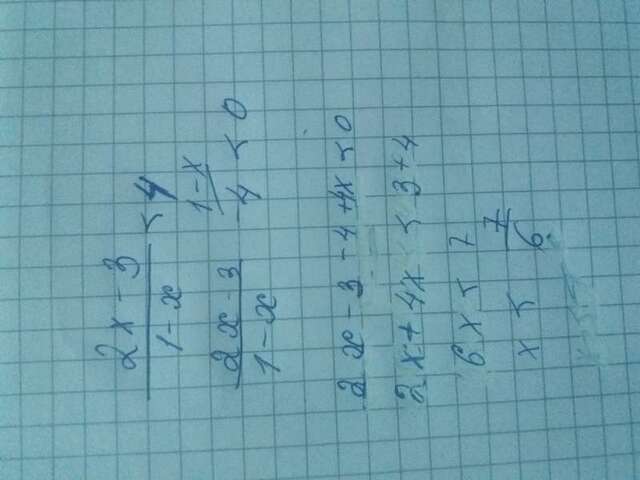 (2x - 3)/(1 - x) < 4
(2x - 3)/(1 - x) - 4 (1 - x) < 0
2x - 3 - 4 + 4x < 0
2x + 4x < 3 + 4
6x < 7
x < 7/6